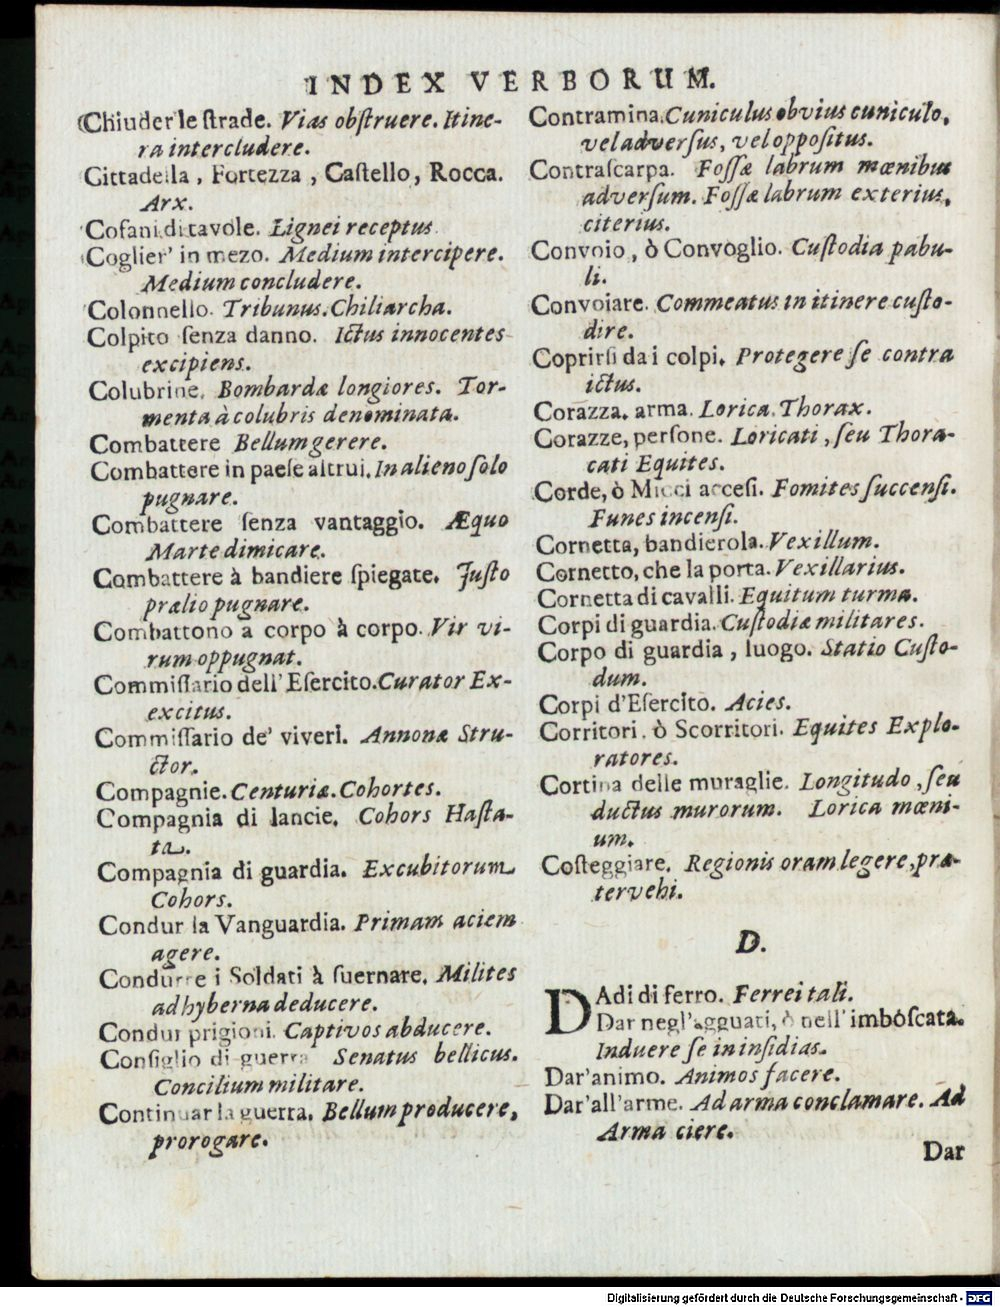 INDEX VERBORUM.
Chiuder le ſtrade. Vias obſtruere. Itine-
ra intercludere.
Cittadella, Fortezza, Caſtello, Rocca.
Arx.
Cofani di tavole. Lignei receptus
Coglier' in mezo. Medium intercipere.
Medium concludere.
Colonnello. Tribunus. Chiliarcha.
Colpito ſenza danno. Ictus innocentes
excipiens.
Colubrine. Bombardæ longiores. Tor-
menta à colubris denominata.
Combattere Bellum gerere.
Combattere in paeſe altrui. In alieno ſolo
pugnare.
Combattere ſenza vantaggio. Æquo
Marte dimicare.
Combattere à bandiere ſpiegate. Juſto
prælio pugnare.
Combattono à corpo à corpo. Vir vi-
rum oppugnat.
Commiſſario dell'Eſercito. Curator Ex-
excitus.
Commiſſario de' viveri. Annonæ Stru-
ctor.
Compagnie. Centuriæ. Cohortes.
Compagnia di lancie. Cohors Haſta-
ta.
Compagnia di guardia. Excubitorum
Cohors.
Condur la Vanguardia. Primam aciem
agere.
Condurre i Soldati à ſuernare. Milites
ad hyberna deducere.
Condur prigioni. Captivos abducere.
Conſiglio di guerra Senatus bellicus.
Concilium militare.
Continuar la guerra. Bellum producere,
prorogare.
Contramina. Cuniculus obvius cuniculo,
vel adverſus, vel oppoſitus.
Contraſcarpa. Foſſæ labrum mœnibus
adverſum. Foſſæ labrum exterius,
citerius.
Convoio, ò Convoglio. Cuſtodia pabu-
li.
Convoiare. Commeatus in itinere cuſto-
dire.
Coprirſi da i colpi. Protegere ſe contra
ictus.
Corazza. arma. Lorica. Thorax.
Corazze, perſone. Loricati, ſeu Thora-
cati Equites.
Corde, ò Micci acceſi. Fomites ſuccenſi.
Funes incenſi.
Cornetta, bandierola. Vexillum.
Cornetto, che la porta. Vexillarius.
Cornetta di cavalli. Equitum turma.
Corpi di guardia. Cuſtodiæ militares.
Corpo di guardia, luogo. Statio Cuſto-
dum.
Corpi d'Eſercito. Acies.
Corritori. ò Scorritori. Equites Explo-
ratores.
Cortina delle muraglie. Longitudo, ſeu
ductus murorum. Lorica mœni-
um.
Coſteggiare. Regionis oram legere, præ-
tervehi.
D.
DAdi di ferro. Ferrei tali.
Dar negl'agguati, ò nell'imboſcata.
Induere ſe in inſidias.
Dar'animo. Animos facere.
Dar'all'arme. Ad arma conclamare. Ad
Arma ciere.
Dar
Digitalisierung gefördert durch die Deutsche Forschungsgemeinschaft - DFG